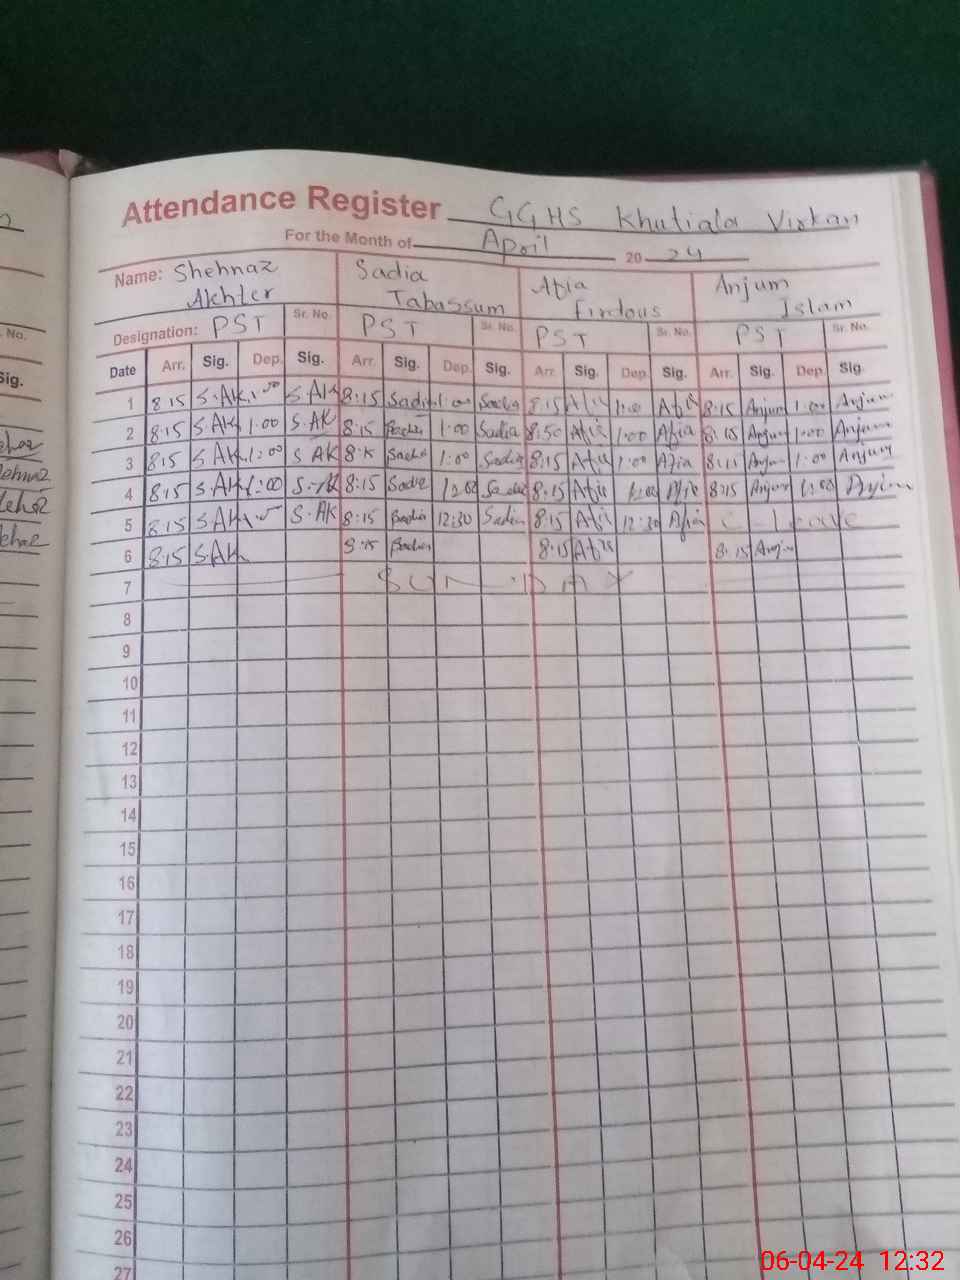 Attendance Register GGHS Khutiala Virkan
For the Month of April 20 24
Name: Shehnaz Akhter Sadia Tabassum Atia Firdous Anjum Islam
Designation: PST Sr. No. PST Sr. No. PST Sr. No. PST Sr. No.
Date Arr. Sig. Dep. Sig. Arr. Sig. Dep. Sig. Arr. Sig. Dep. Sig. Arr. Sig. Dep. Sig.
1 8:15 S.AK S.AK 8:15 Sadia 1:00 Sadia 8:15 Atia 1:00 Atia 8:15 Anjum 1:00 Anjum
2 8:15 S.AK 1:00 S.AK 8:15 Sadia 1:00 Sadia 8:50 Atia 1:00 Atia 8:15 Anjum 1:00 Anjum
3 8:15 S.AK 1:00 S AK Sadia 1:00 Sadia 8:15 Atia 1:00 Atia 8:15 Anjum 1:00 Anjum
4 8:15 S.AK 1:00 8:15 Sadia Sadia 8:15 Atia 1:00 Atia 8:15 Anjum 1:00 Anjum
5 8:15 S.AK S.AK 8:15 Sadia 12:30 Sadia 8:15 Atia 12:30 Atia C-Leave
6 8:15 S.AK 8:15 Sadia 8:15 Atia 8:15 Anjum
7 SUN DAY
8
9
10
11
12
13
14
15
16
17
18
19
20
21
22
23
24
25
26
27
06-04-24 12:32